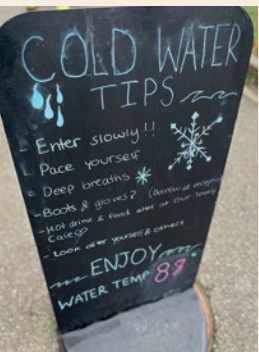 COLD WATER
TIPS
- Enter slowly!!
- Pace yourself
- Deep breaths
- Boots & gloves? (Borrow at reception
- Hot drink & food after at our lovely
Cafe
- Look after yourself & others
ENJOY
WATER TEMP 8.8°